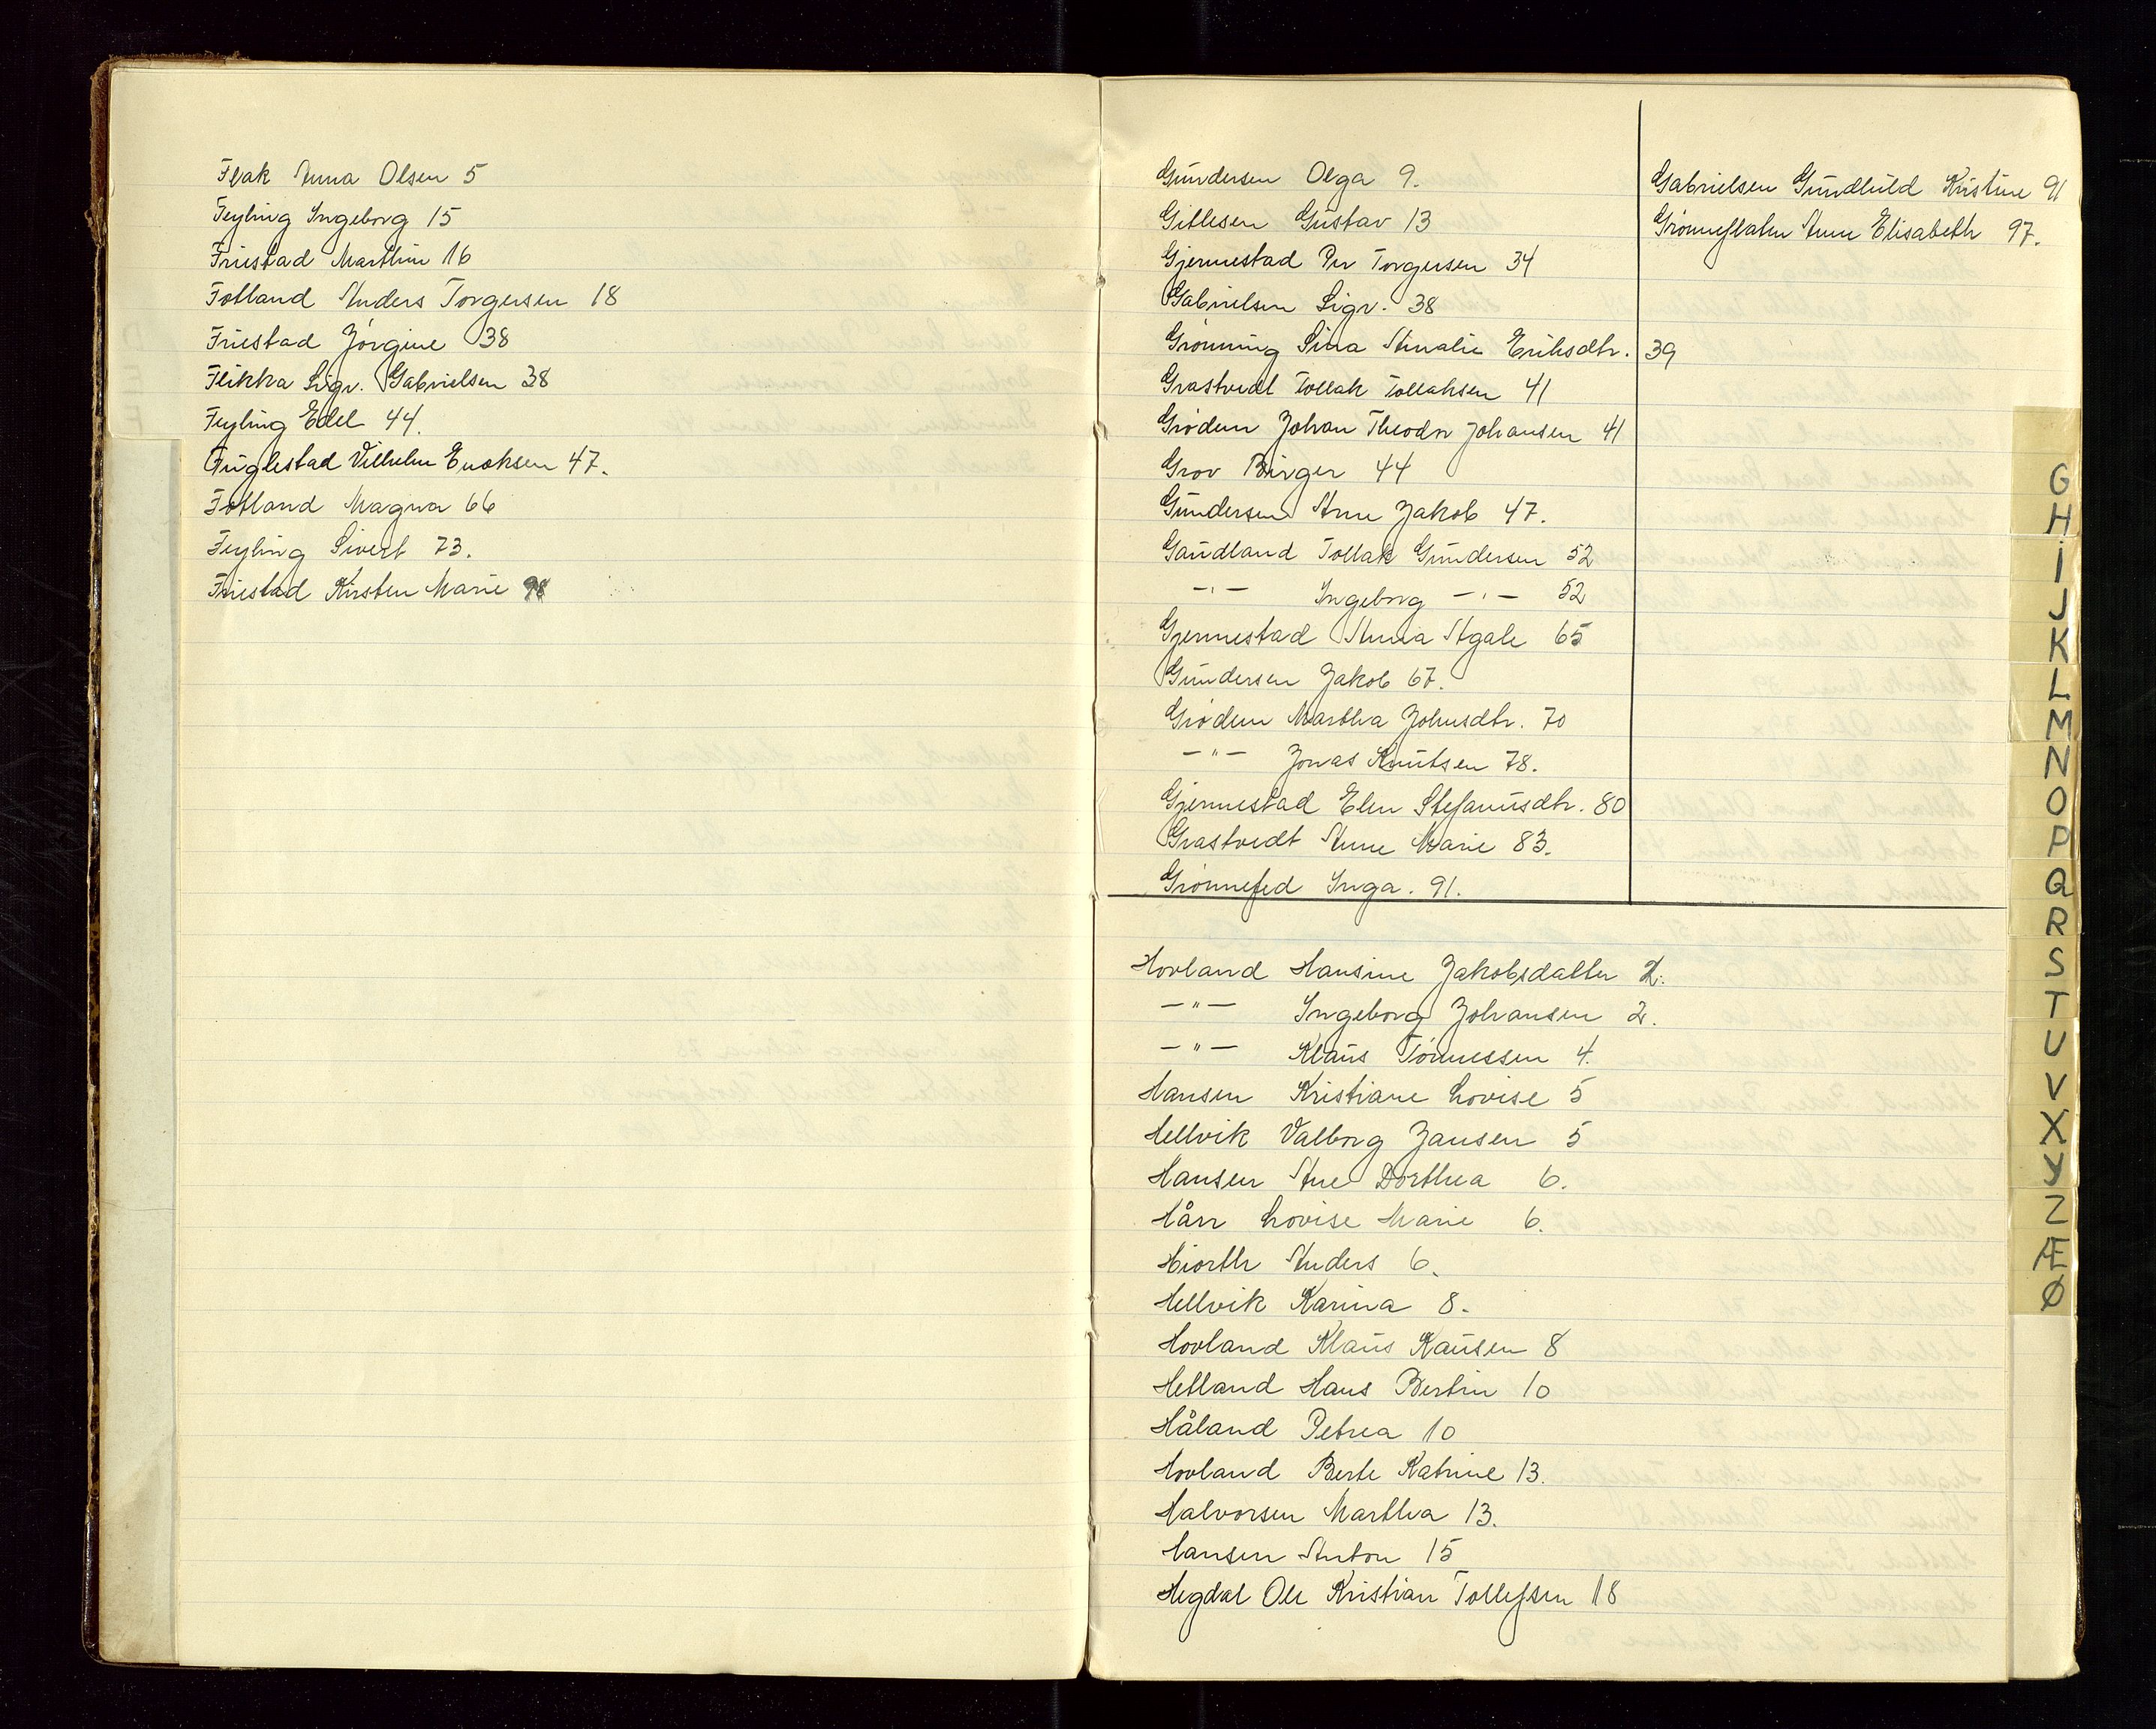 Flak Anna Olsen 5
Feyling Ingeborg 15
Friestad Marthin 16
Fotland Anders Torgersen 18
Friestad Jørgine 38
Flikka Sigv. Gabrielsen 38
Feyling Edel 44.
Fuglestad Vilhelm Enoksen 47.
Fotland Magna 66
Feyling Sivert 73.
Friestad Kirsten Marie
Gundersen Olga 9.
Gitlesen Gustav 13
Gjermestad Per Torgersen 34
Gabrielsen Sigv. 38
Grønning Sina Amalie Eriksdtr. 39
Grastvedt Tollak Tollaksen 41
Grødem Johan Theodor Johansen 41
Grov Birger 44
Gundersen Ane Jakob 47.
Gaudland Tollak Gundersen 52
-"- Ingeborg -"- 52
Gjermestad Anna Agate 65
Gundersen Jakob 67.
Grødem Martha Johnsdtr. 70
-"- Jonas Knutsen 78.
Gjermestad Elen Stefanusdtr. 80
Grastvedt Anne Marie 83.
Grønnefed Inga. 91.
Gabrielsen Gundhild Kristine 91
Grønneflaten Anne Elisabeth 97.
Hovland Hansine Jakobsdatter 2.
-"- Ingeborg Johansen 2.
-"- Klaus Tønnessen 4.
Hansen Kristiane Lovise 5
Hellvik Valborg Jansen 5
Hansen Ane Dorthea 6.
Hårr Lovise Marie 6.
Hiorth Anders 6.
Hellvik Karina 8.
Hovland Klaus Kausen 8
Hetland Hans Bertin 10
Håland Petrea 10
Hovland Berte Katrine 13.
Halvorsen Martha 13.
Hansen Anton 15
Hegdal Ole Kristian Tollefsen 18
G
H
I
J
K
L
M
N
O
P
Q
R
S
T
U
V
X
Y
Z
Æ
Ø